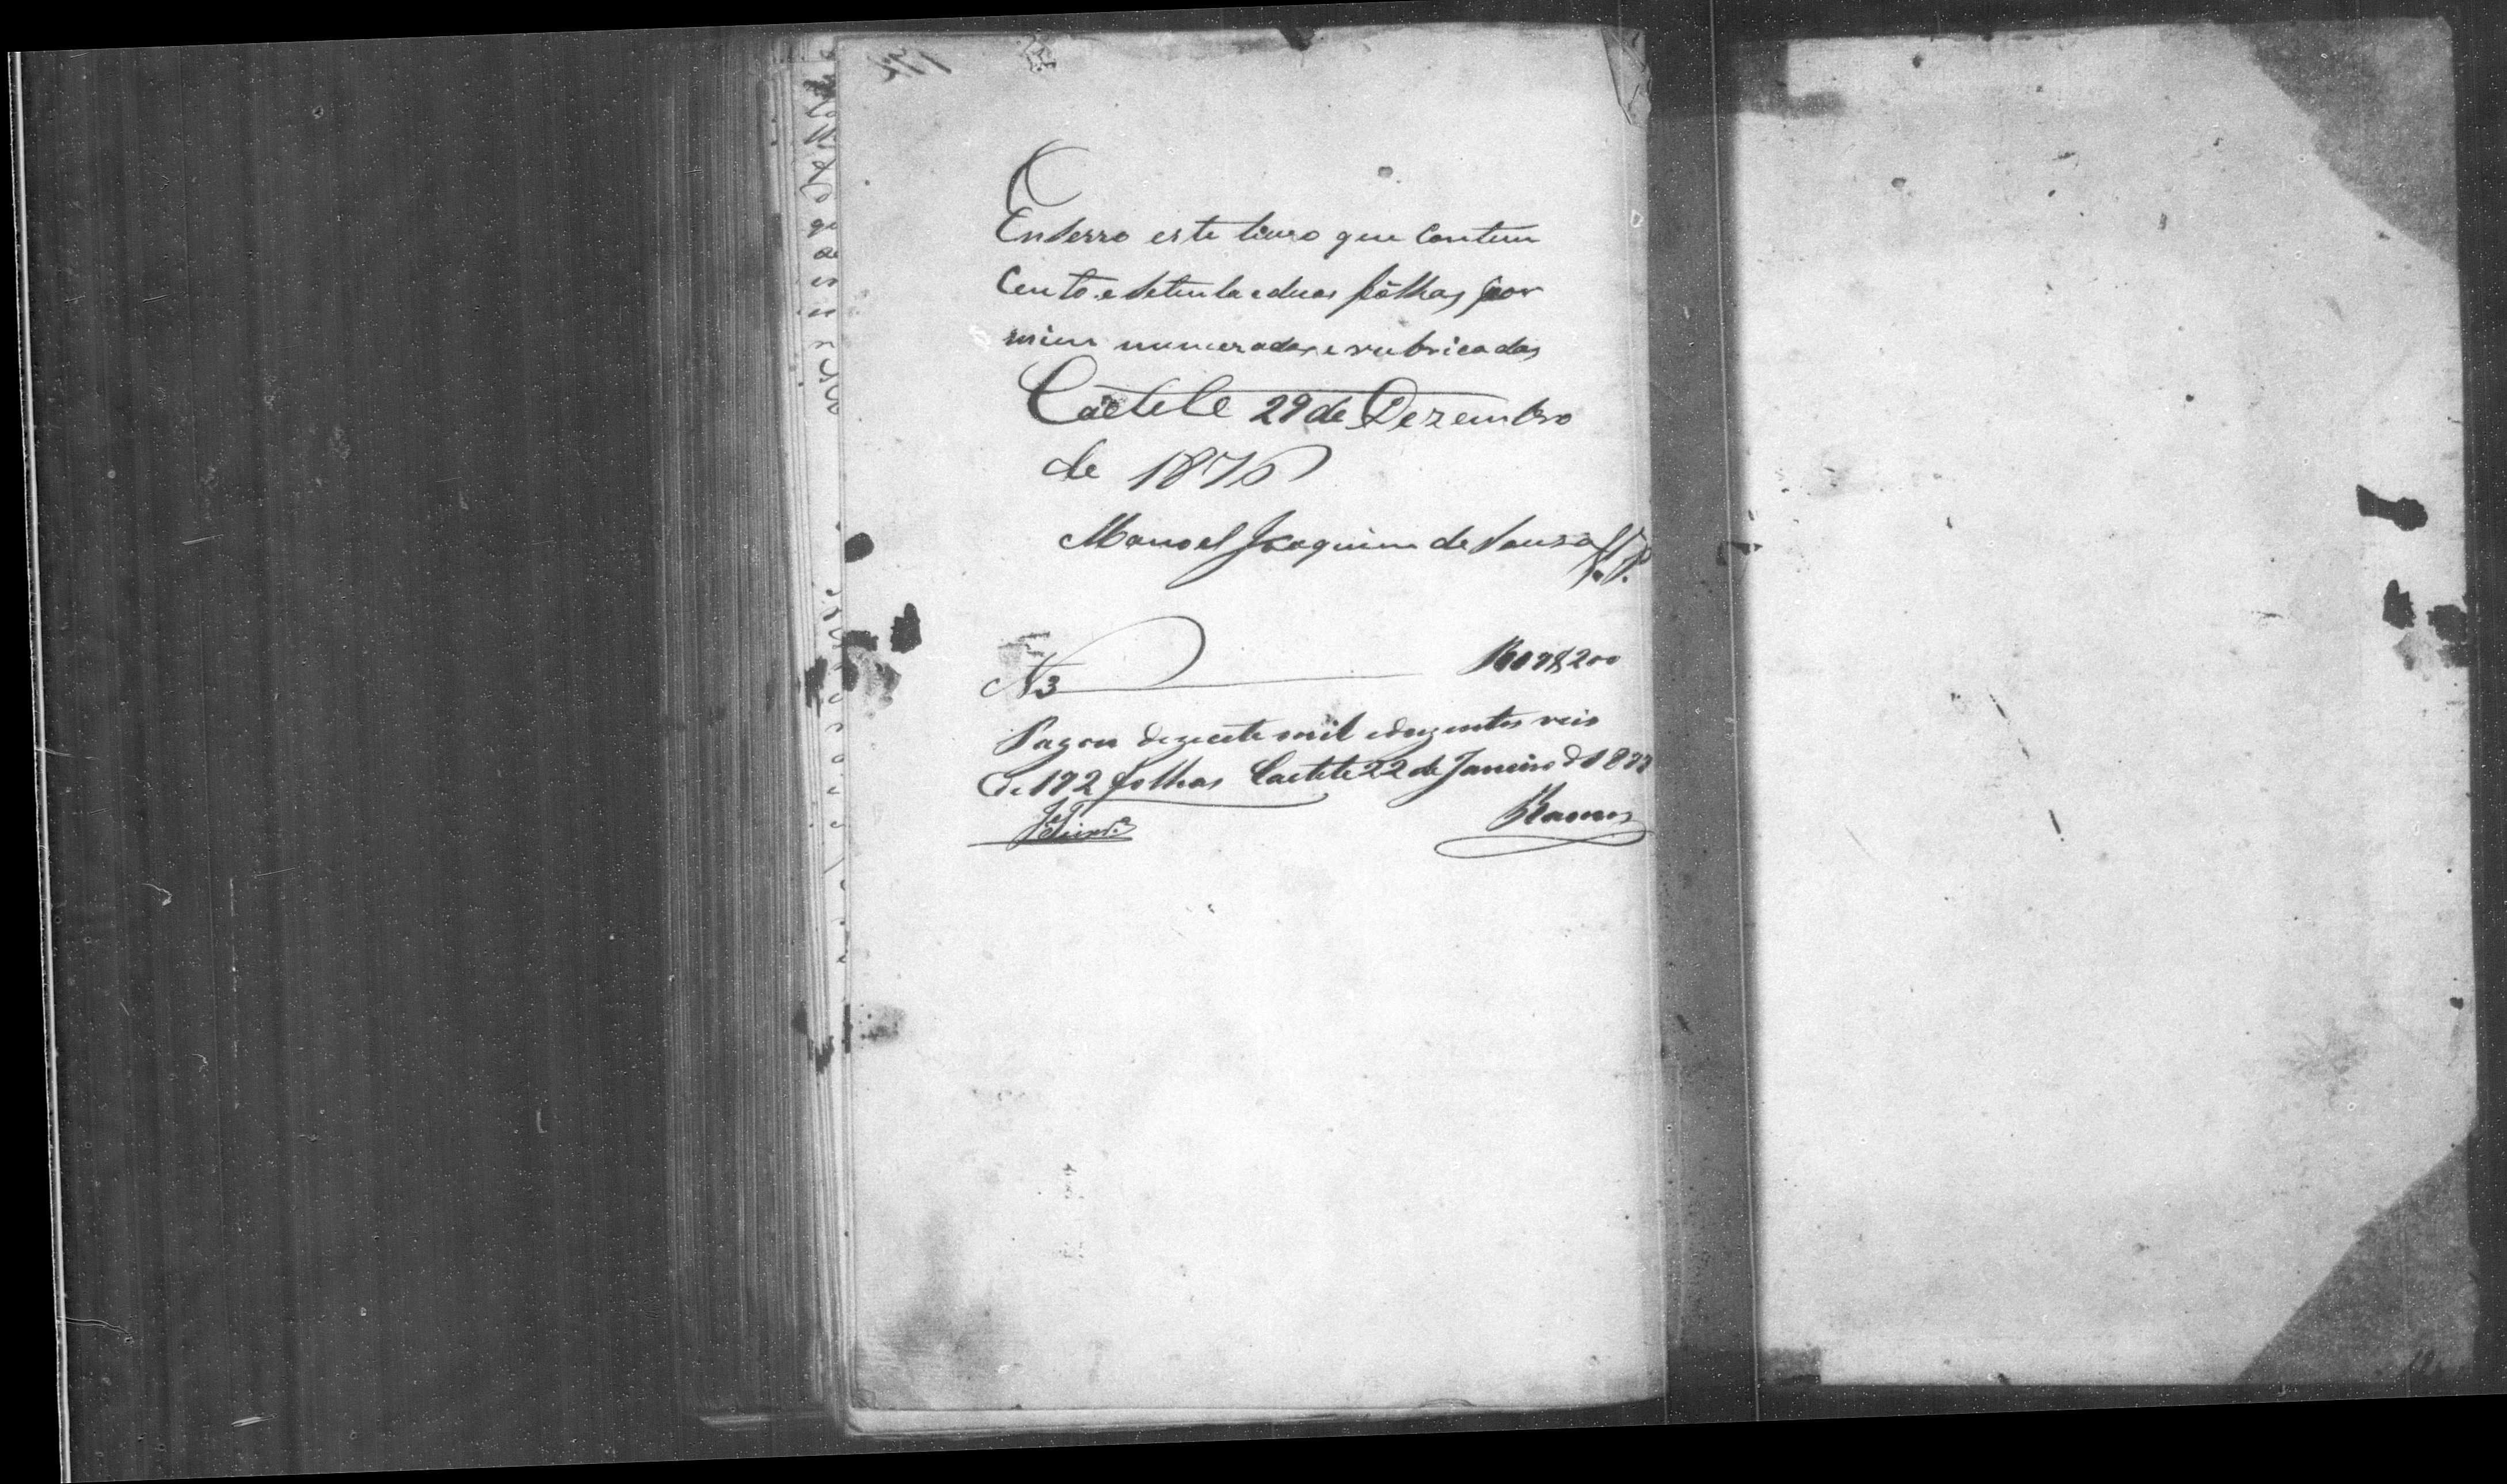 Enserro este livro que contem
Cento e setenta e duas fôlhas por
mim numeradas e rubricadas
Caeteté 29 de Dezembro
de 1876
Manoel Joaquim de Souza
N 3 17$200
Pagou dezecete mil e duzentos reis
de 172 folhas Caetité 22 de Janeiro d 1877
Ramos